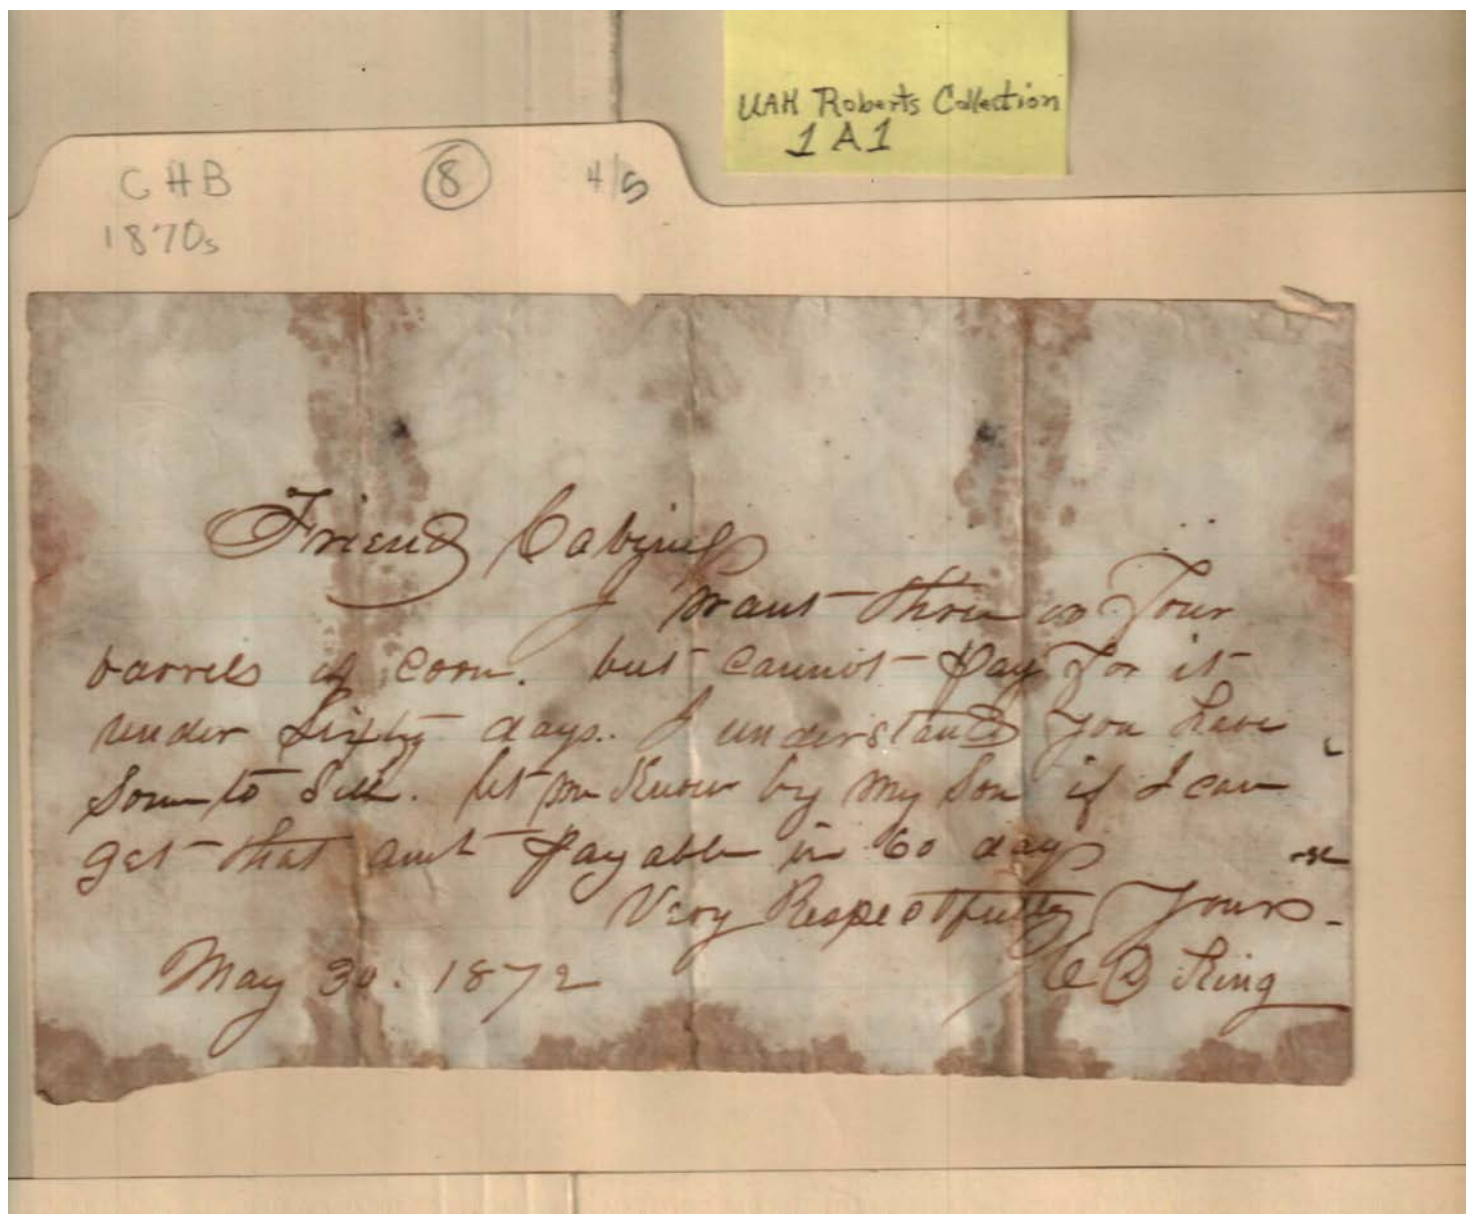 UAH Roberts Collection
1A1
CHB 8 4/5
1870s
Friend Cabiness
I want three or Four
barrels of corn. but cannot pay For it
under sixty days.. I understand you have
some to sell. let me know by my son if I can
get that amt payable in 60 days
Very Respectfully Yours-
May 30. 1872
D King